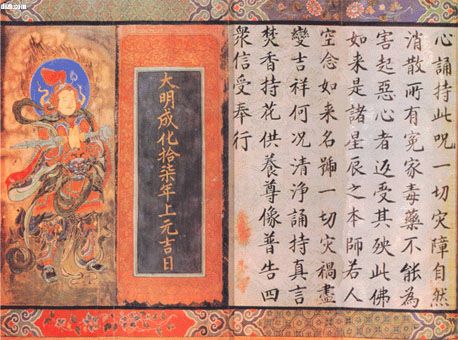 心誦持此呪一切灾障自然
消散所有寃家毒藥不能為
害起惡心者返受其殃此佛
如来是諸星辰之本師若人
空念如来名號一切灾禍盡
變吉祥何况清淨誦持真言
焚香持花供養尊像普告四
衆信受奉行
大明成化拾柒年上元吉日